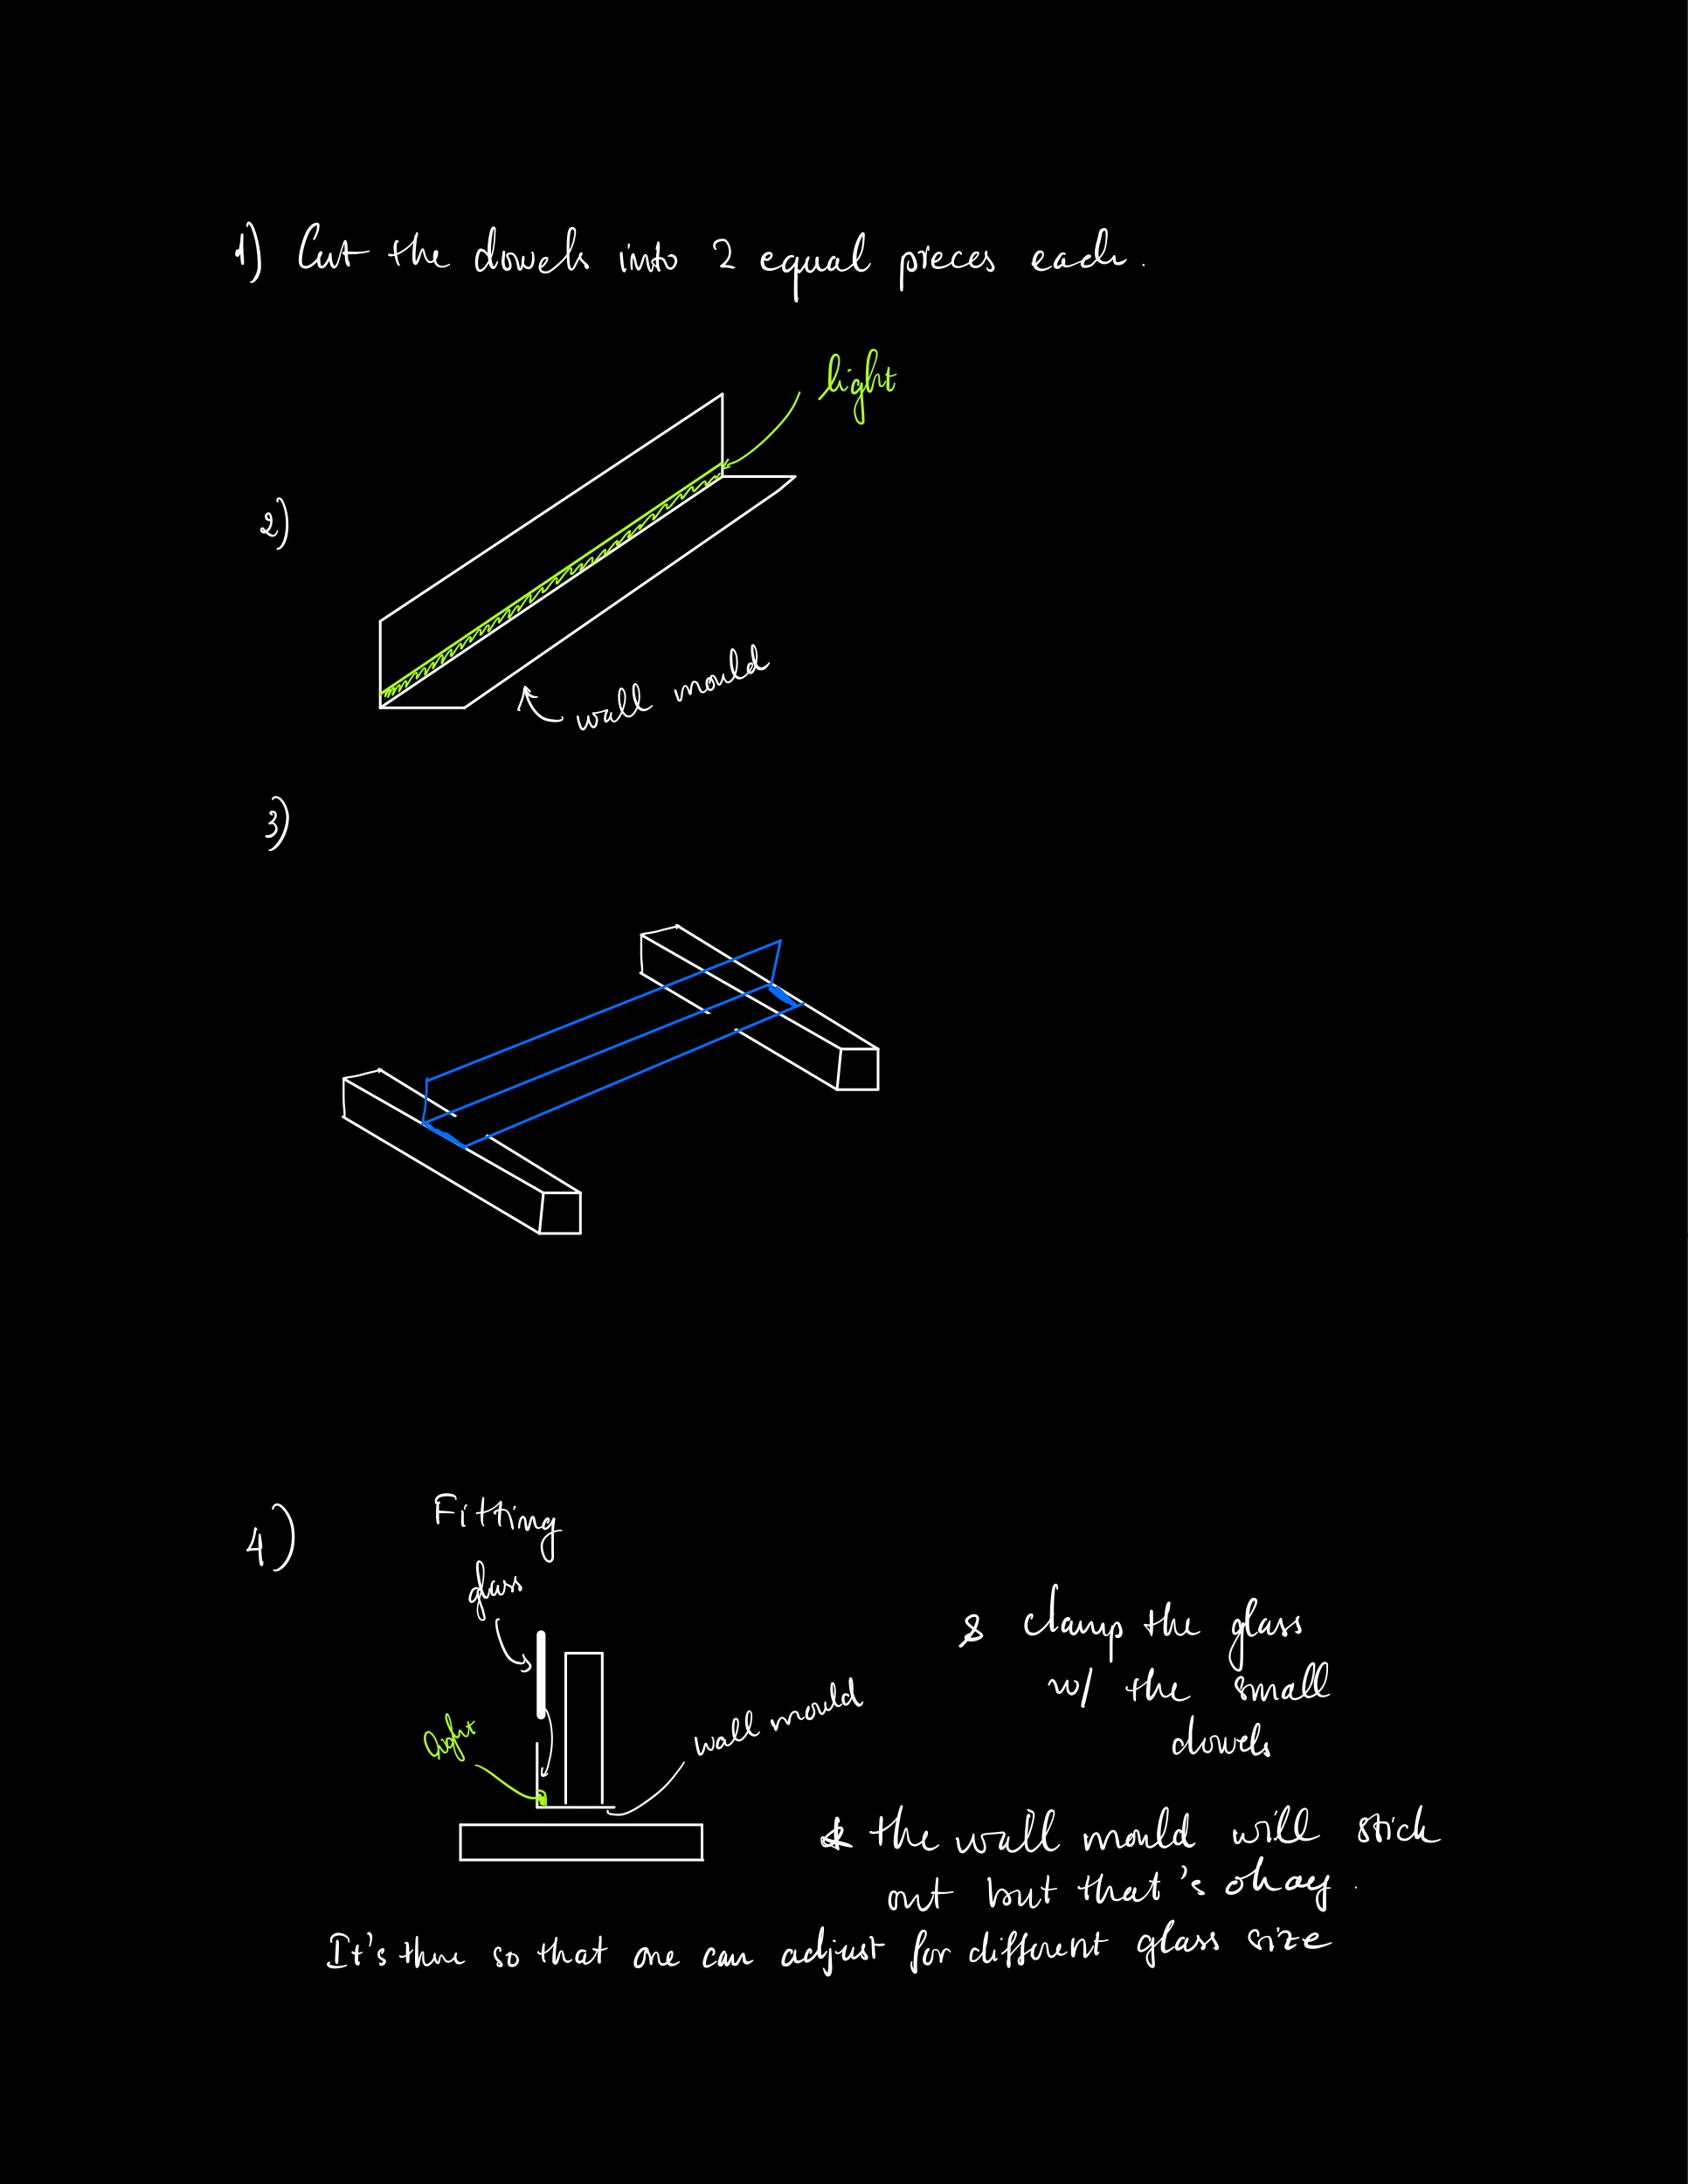 1) Cut the dowels into 2 equal pieces each.
light
2)
wall mould
3)
4)
Fitting
glass
& clamp the glass
w/ the small
dowels
light
wall mould
* the wall mould will stick
out but that's okay.
It's there so that one can adjust for different glass size